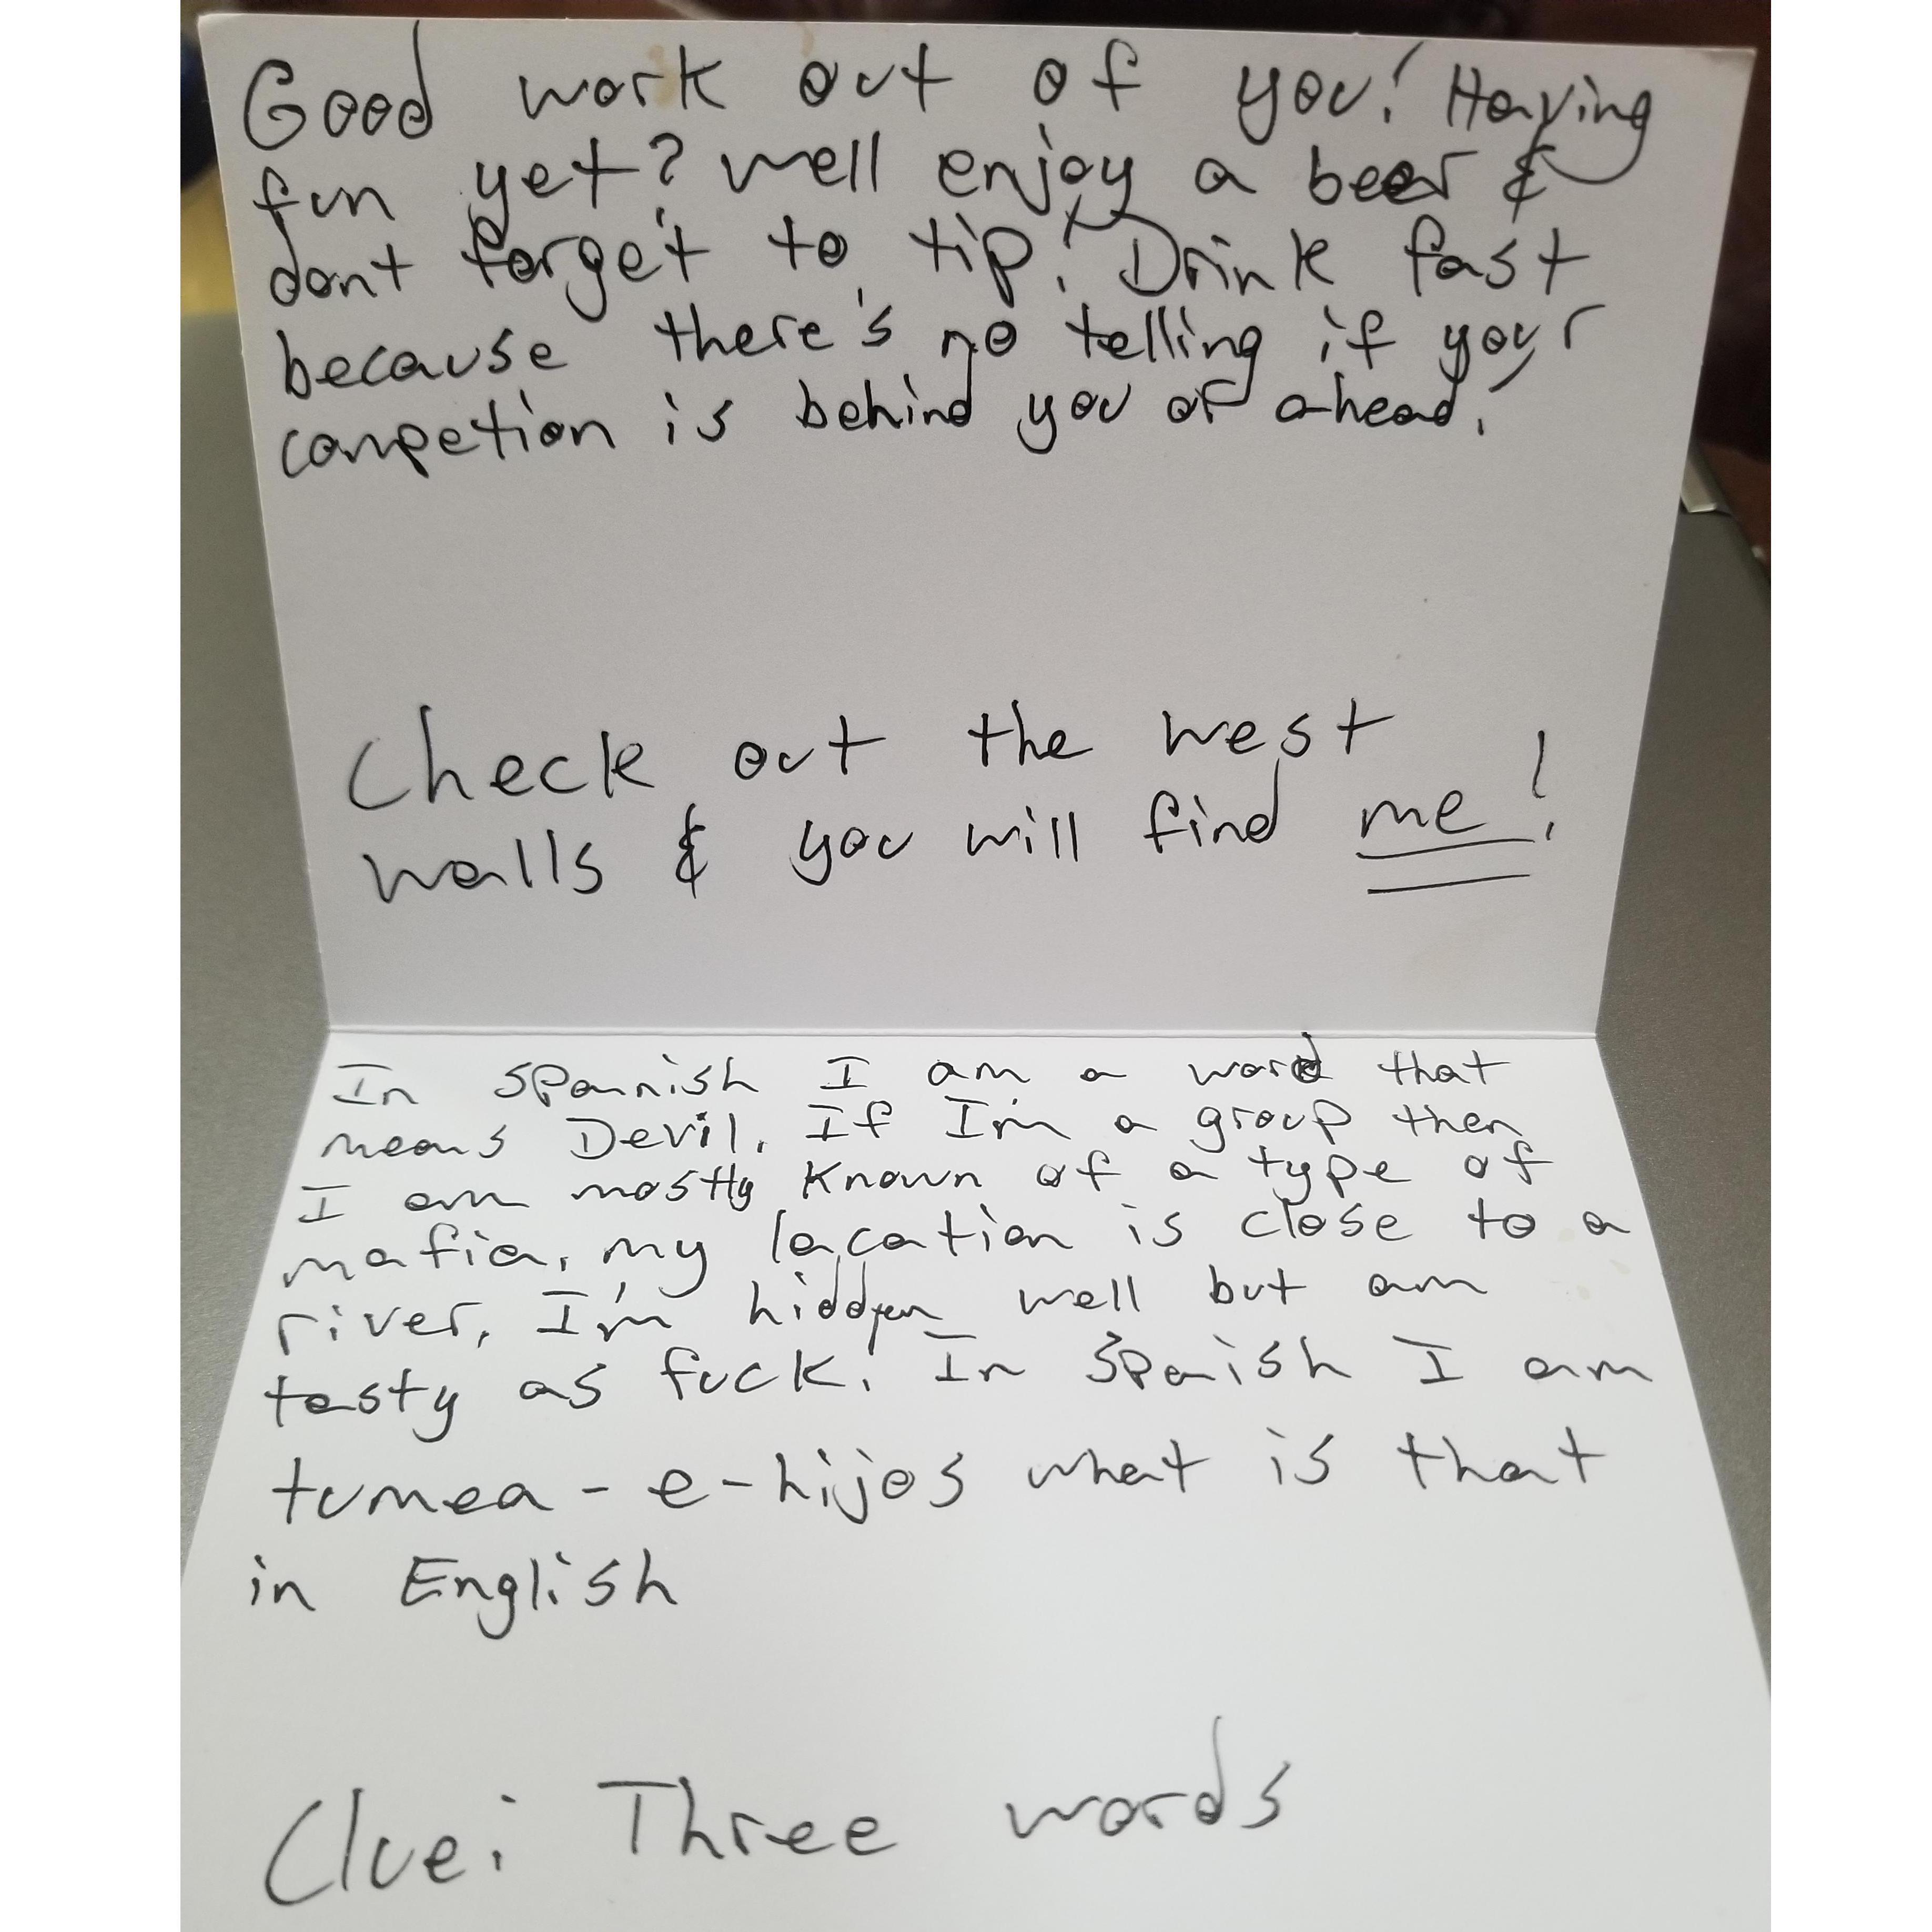 Good work out of you! Having
fun yet? well enjoy a beer &
dont forget to tip! Drink fast
because there's no telling if your
competion is behind you or ahead!
Check out the west
walls & you will find me!
In Spannish I am a word that
means Devil. If I'm a group then
I am mostly known of a type of
mafia, my location is close to a
river, I'm hidden well but am
tasty as fuck! In Spanish I am
tumea-e-hijos what is that
in English
Clue: Three words